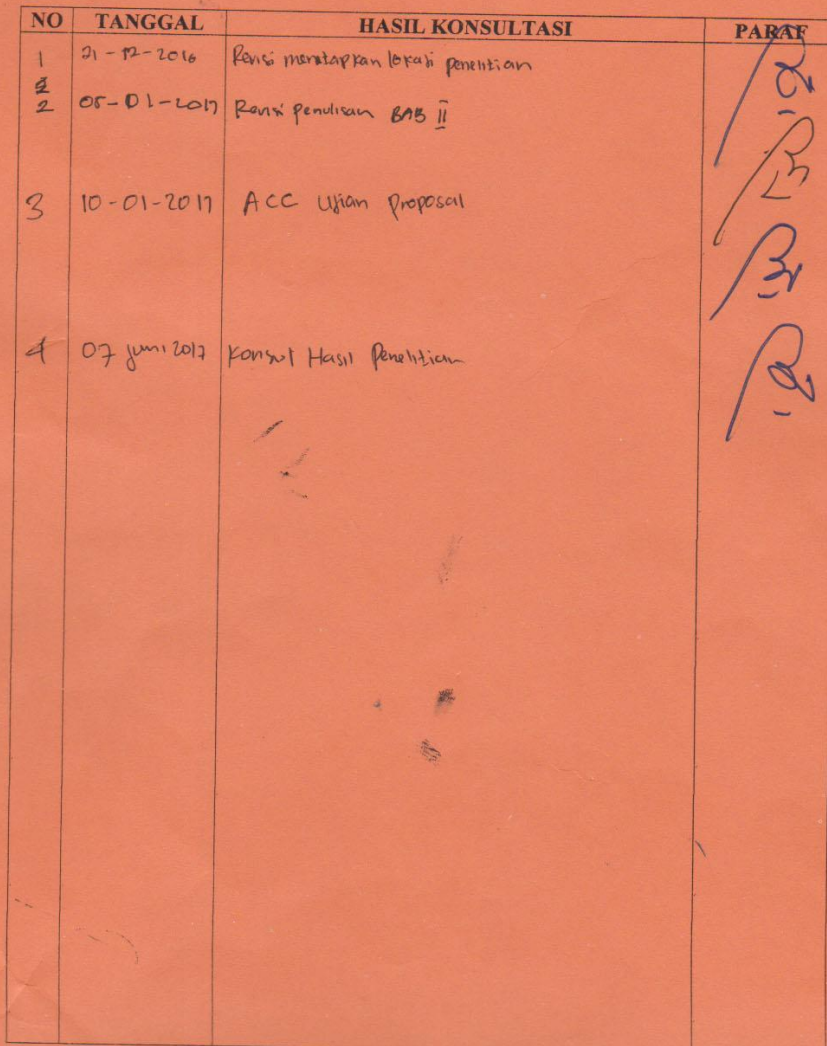 NO TANGGAL HASIL KONSULTASI PARAF
1 21-12-2016 Revisi menetapkan lokasi penelitian
2
2 05-01-2017 Revisi penulisan BAB II
3 10-01-2017 ACC Ujian Proposal
4 07 juni 2017 Konsul Hasil Penelitian